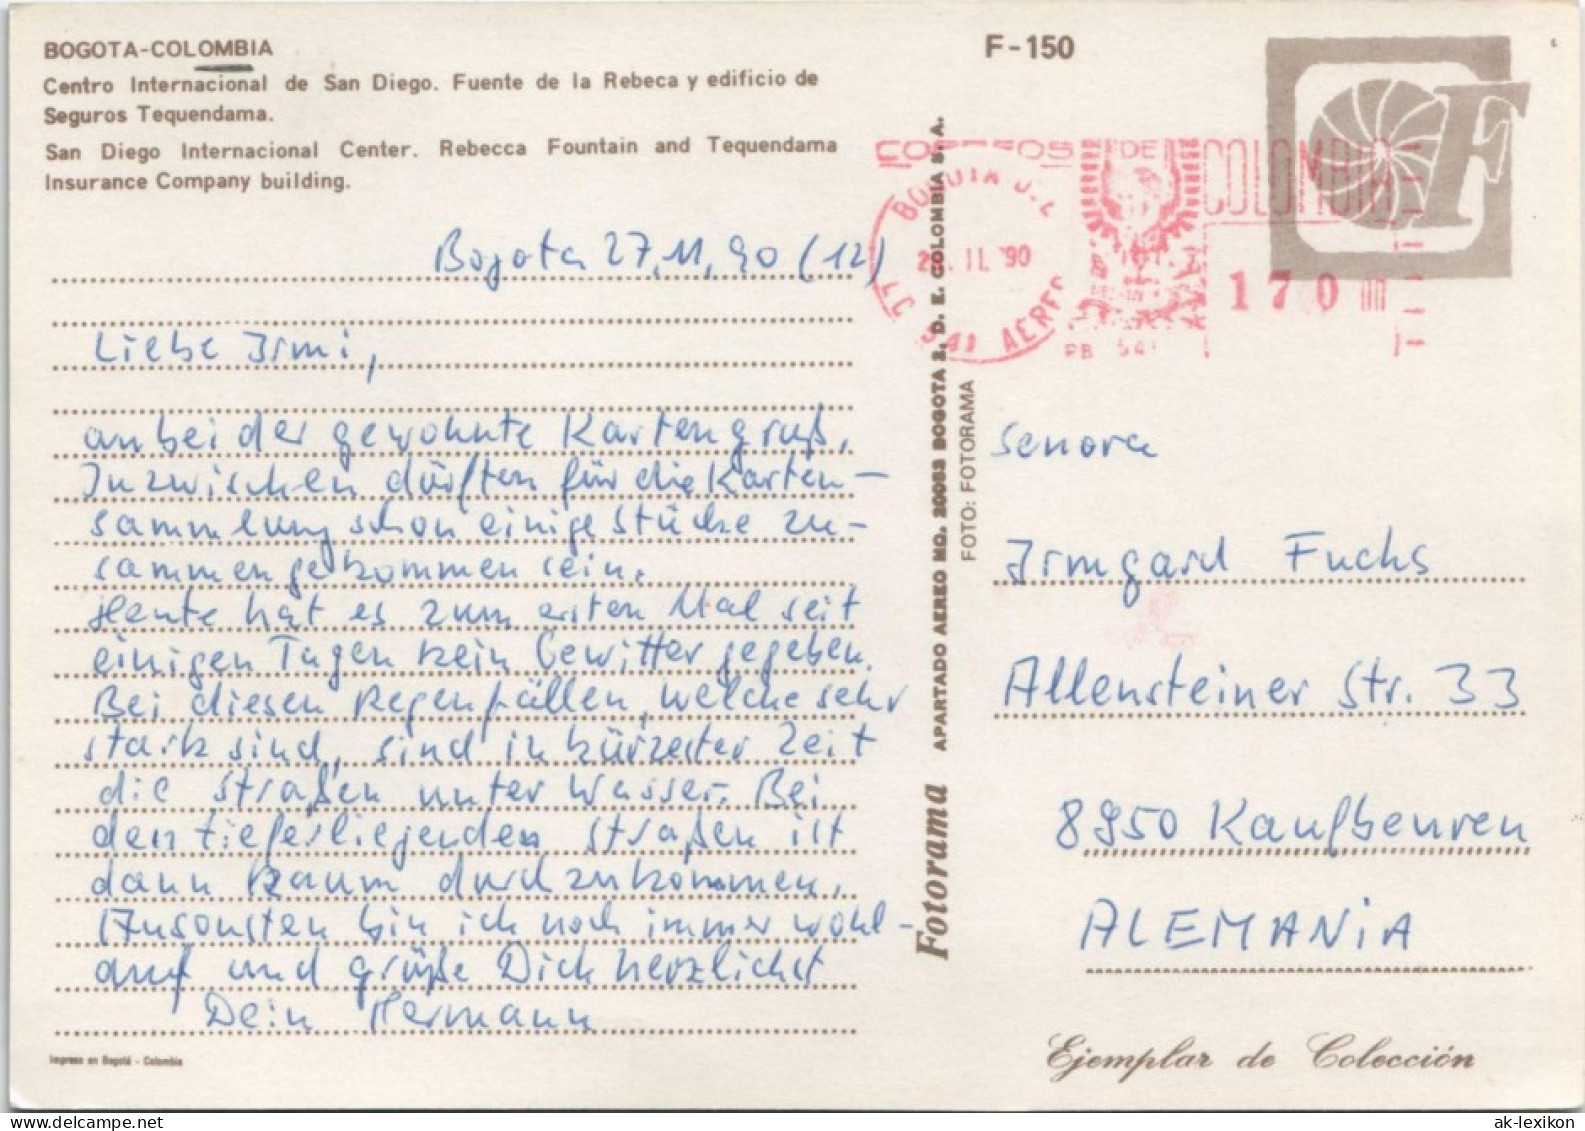 BOGOTA-COLOMBIA
Centro Internacional de San Diego. Fuente de la Rebeca y edificio de
Seguros Tequendama.
San Diego Internacional Center. Rebecca Fountain and Tequendama
Insurance Company building.
F-150
F
CORREOS DE COLOMBIA
BOGOTA D.E.
II. 90
AEREO
170 00
PB
Bogota 27.11.90 (12)
Liebe Irmi,
anbei der gewohnte Kartengruß.
Inzwischen dürften für die Karten-
sammlung schon einige Stücke zu-
sammengekommen sein.
Heute hat es zum ersten Mal seit
einigen Tagen kein Gewitter gegeben.
Bei diesen Regenfällen, welche sehr
stark sind, sind in kürzester Zeit
die Straßen unter Wasser. Bei
den tieferliegenden Straßen ist
dann kaum durchzukommen.
Ansonsten bin ich noch immer wohl-
auf und grüße Dich herzlichst
Dein Hermann
Impreso en Bogotá - Colombia
Fotorama APARTADO AEREO NO. 20053 BOGOTA 2, D. E. COLOMBIA S. A.
FOTO: FOTORAMA
Senora
Irmgard Fuchs
Allensteiner Str. 33
8950 Kaufbeuren
ALEMANiA
Ejemplar de Colección
www.delcampe.net
ak-lexikon